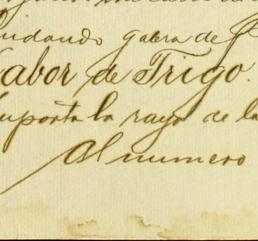 galera de
Labor de Trigo.
importa la raya de la
Al numero